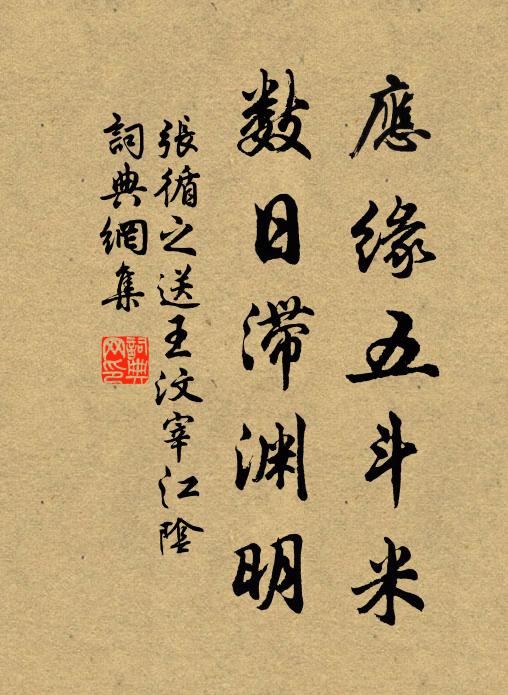 應緣五斗米
數日滯渊明
張循之送王汶宰江陰
詞典網集
詞典
网印